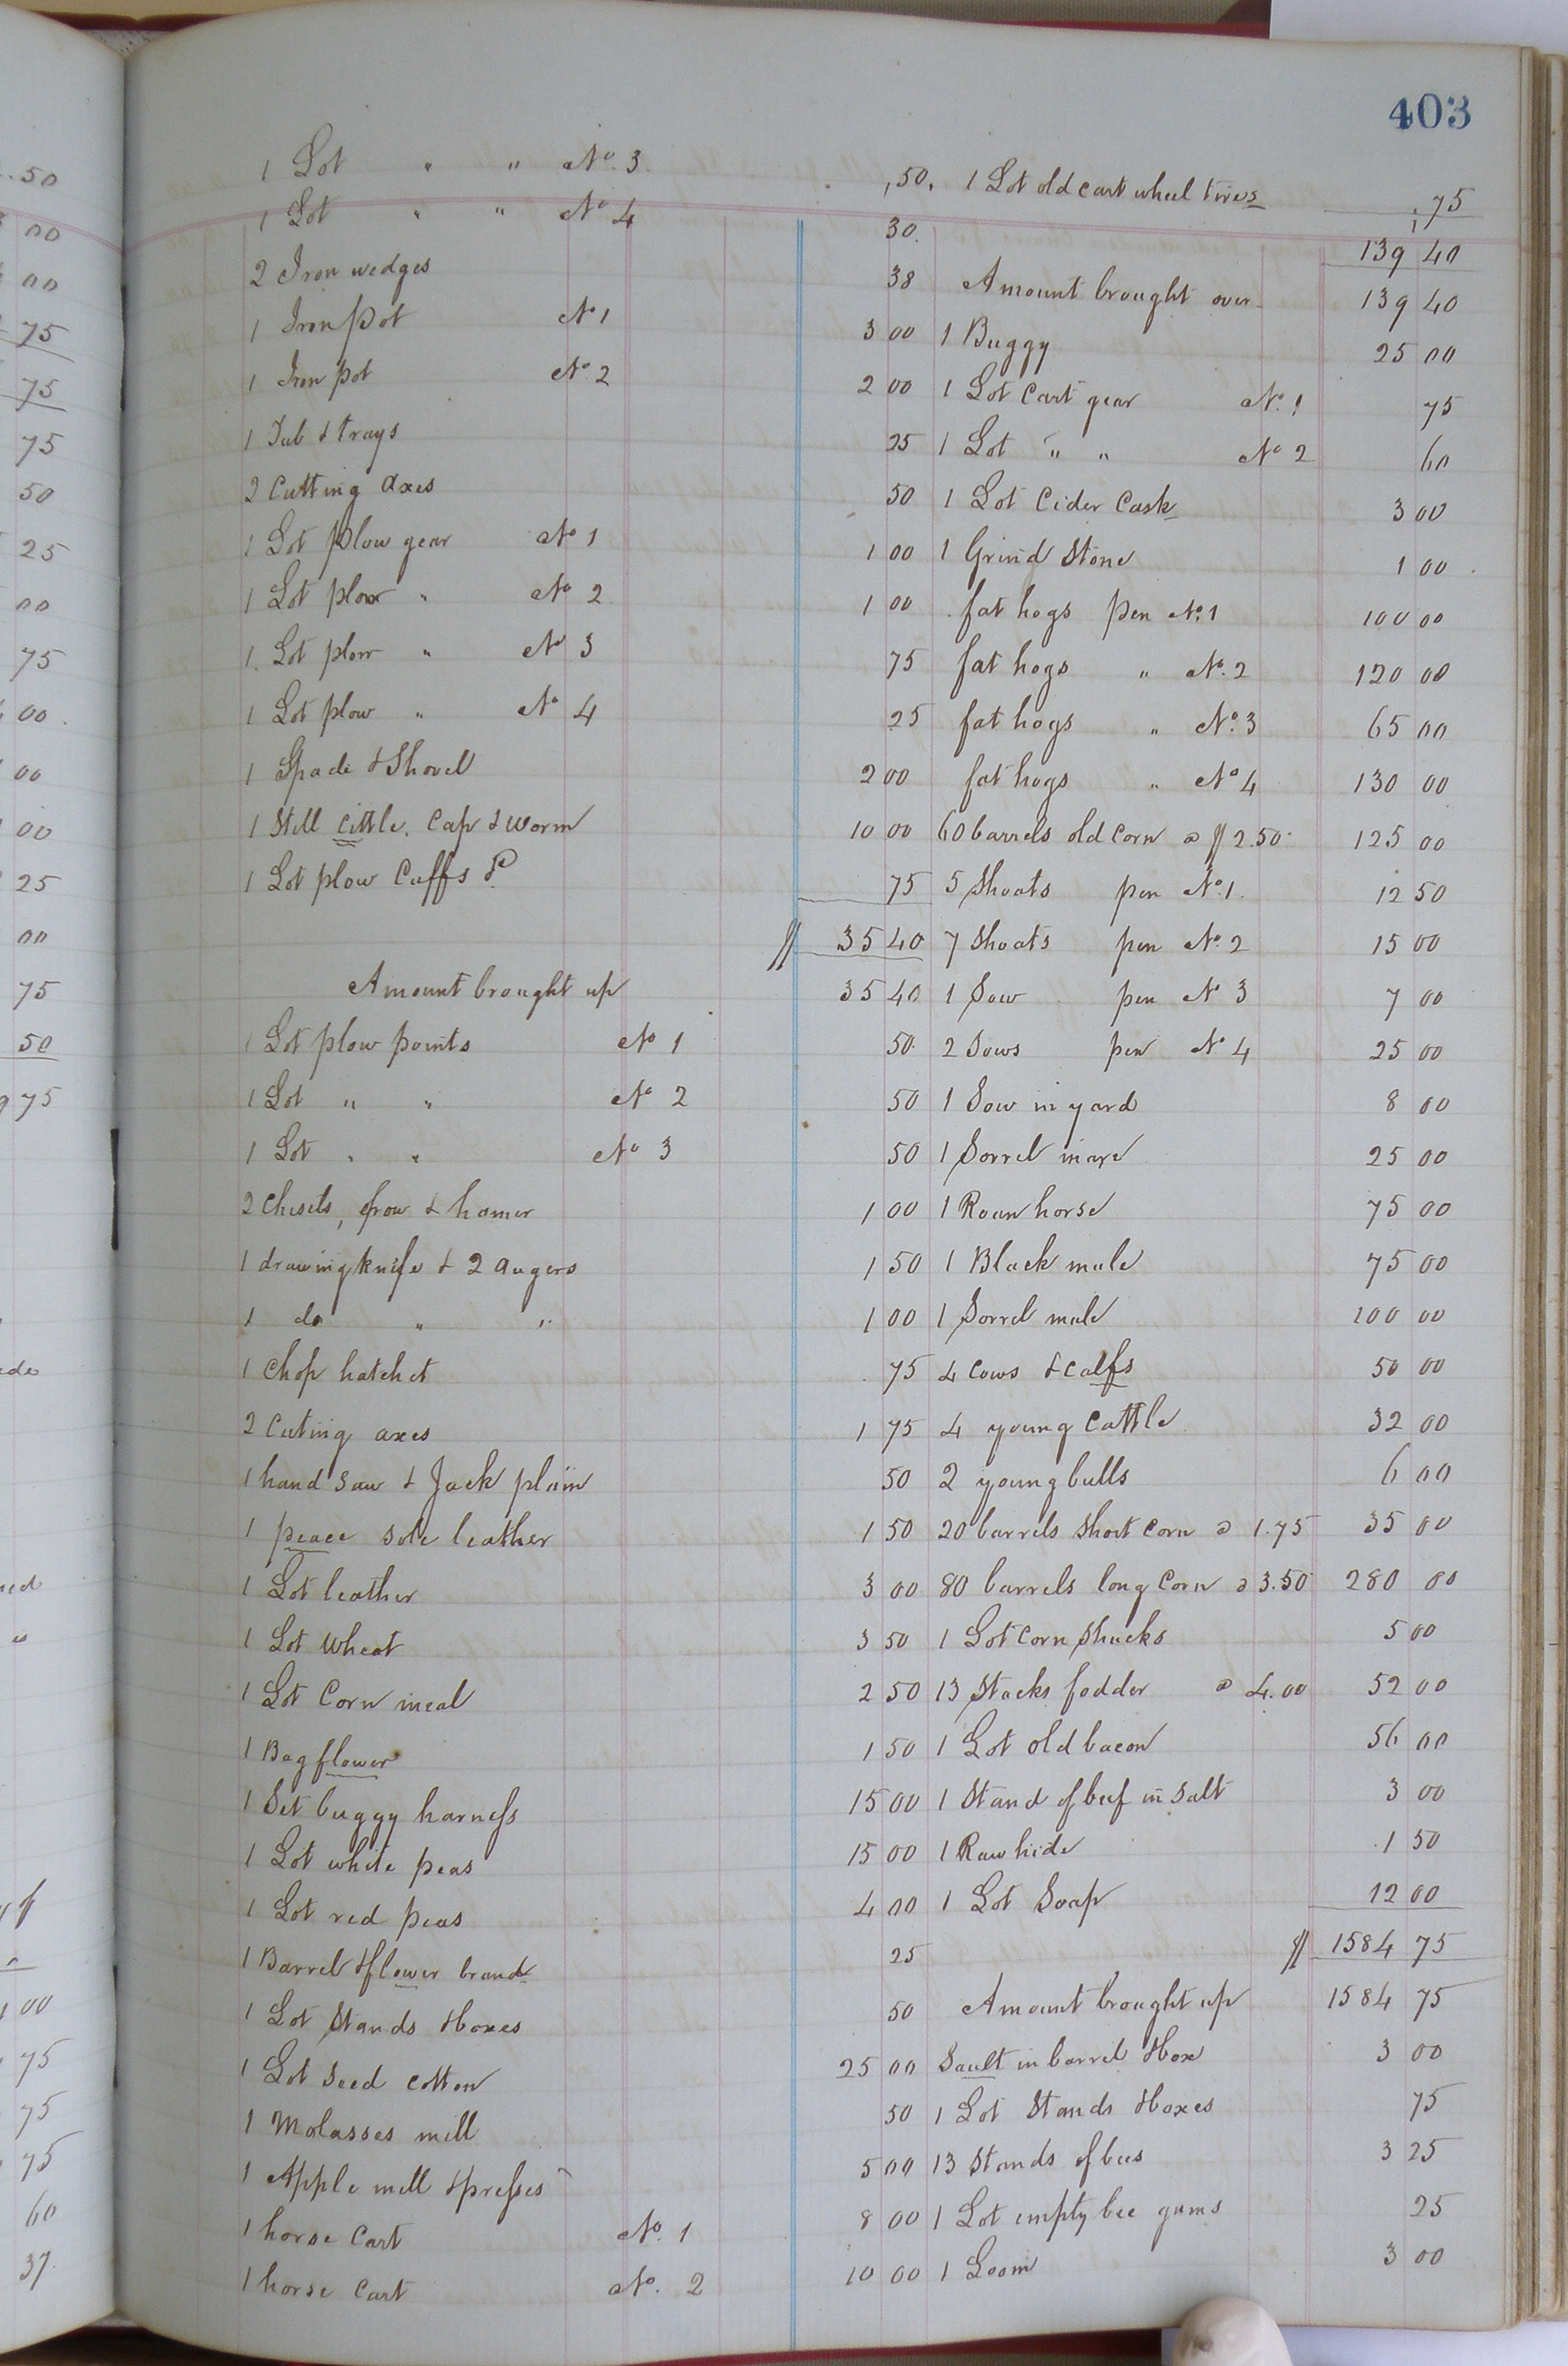 403
1 Lot " " No. 3. ,50,
1 Lot " " No 4 30.
2 Iron wedges 38
1 Iron Pot No 1 3 00
1 Iron pot No. 2 2 00
1 Tub & trays 25
2 Cutting axes 50
1 Lot Plow gear No 1 1 00
1 Lot plow " No 2 1 00
1 Lot plow " No 3 75
1 Lot plow " No 4 25
1 Spade & Shovel 2 00
1 Still cittle, Cap & Worm 10 00
1 Lot plow Cuffs & 75
$ 35 40
Amount brought up 35 40
1 Lot plow points No 1 50
1 Lot " " No 2 50
1 Lot " " No 3 50
2 Chisels, frow & hamer 1 00
1 drawing knife & 2 augers 1 50
1 do " " 1 00
1 Chop hatchet 75
2 Cuting axes 1 75
1 hand saw & Jack plain 50
1 peace sole leather 1 50
1 Lot leather 3 00
1 Lot Wheat 3 50
1 Lot Corn meal 2 50
1 Bag flower 1 50
1 Set buggy harness 15 00
1 Lot white peas 15 00
1 Lot red peas 4 00
1 Barrel & flower brand 25
1 Lot Stands & boxes 50
1 Lot Seed cotton 25 00
1 Molasses mill 50
1 Apple mill & presses 5 00
1 horse Cart No. 1 8 00
1 horse Cart No. 2 10 00
1 Lot old cart wheel tires ,75
139 40
Amount brought over 139 40
1 Buggy 25 00
1 Lot Cart gear No. 1 75
1 Lot " " No 2 60
1 Lot Cider Cask 3 00
1 Grind Stone 1 00
fat hogs pen No. 1 100 00
fat hogs " No. 2 120 00
fat hogs " No. 3 65 00
fat hogs " No 4 130 00
60 barrels old Corn @ $2.50 125 00
5 Shoats pen No. 1 12 50
7 Shoats pen No. 2 15 00
1 Sow pen No 3 7 00
2 Sows pen No 4 25 00
1 Sow in yard 8 00
1 Sorrel mare 25 00
1 Roan horse 75 00
1 Black mule 75 00
1 Sorrel mule 100 00
4 Cows & calfs 50 00
4 young Cattle 32 00
2 young bulls 6 00
20 barrels Short Corn @ 1.75 35 00
80 barrels long Corn @ 3.50 280 00
1 Lot Corn Shucks 5 00
13 Stacks fodder @ 4.00 52 00
1 Lot old bacon 56 00
1 Stand of beef in Salt 3 00
1 Raw hide 1 50
1 Lot Soap 12 00
$ 1584 75
Amount brought up 1584 75
Sault in barrel & box 3 00
1 Lot Stands & boxes 75
13 Stands of bees 3 25
1 Lot empty bee gums 25
1 Loom 3 00